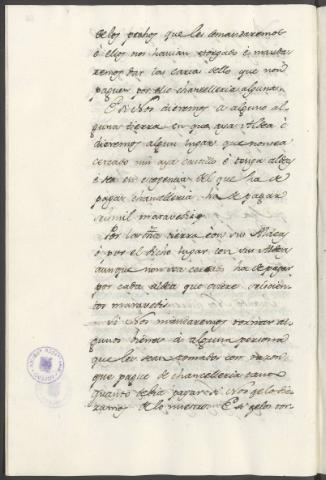 de los pechos que les demandaremos
ò ellos nos havian otorgado è manda
remos dar las cartas dello que non
paguen por ello chancelleria alguna.
E si Nos dieremos a alguno al
guna tierra en que aya Aldea è
dieremos algun lugar que non sea
cercado nin aya castillo è tenga aldea
è sea en escogencia del que ha de
pagar chancelleria ha de pagar
seis mil maravedis
Por la tierra con sus Aldeas
ò por el dicho lugar con sus Aldeas
aunque non sea cercado ha de pagar
por cada aldea que oviere seiscien
tos maravedis
Si Nos mandaremos tornar al
gunos bienes à alguna persona
que les sean tomados con razon
que pague de chancelleria tanto
quanto debia pagar si Nos gelo die
ramos de lo nuestro. E si gelos tor-